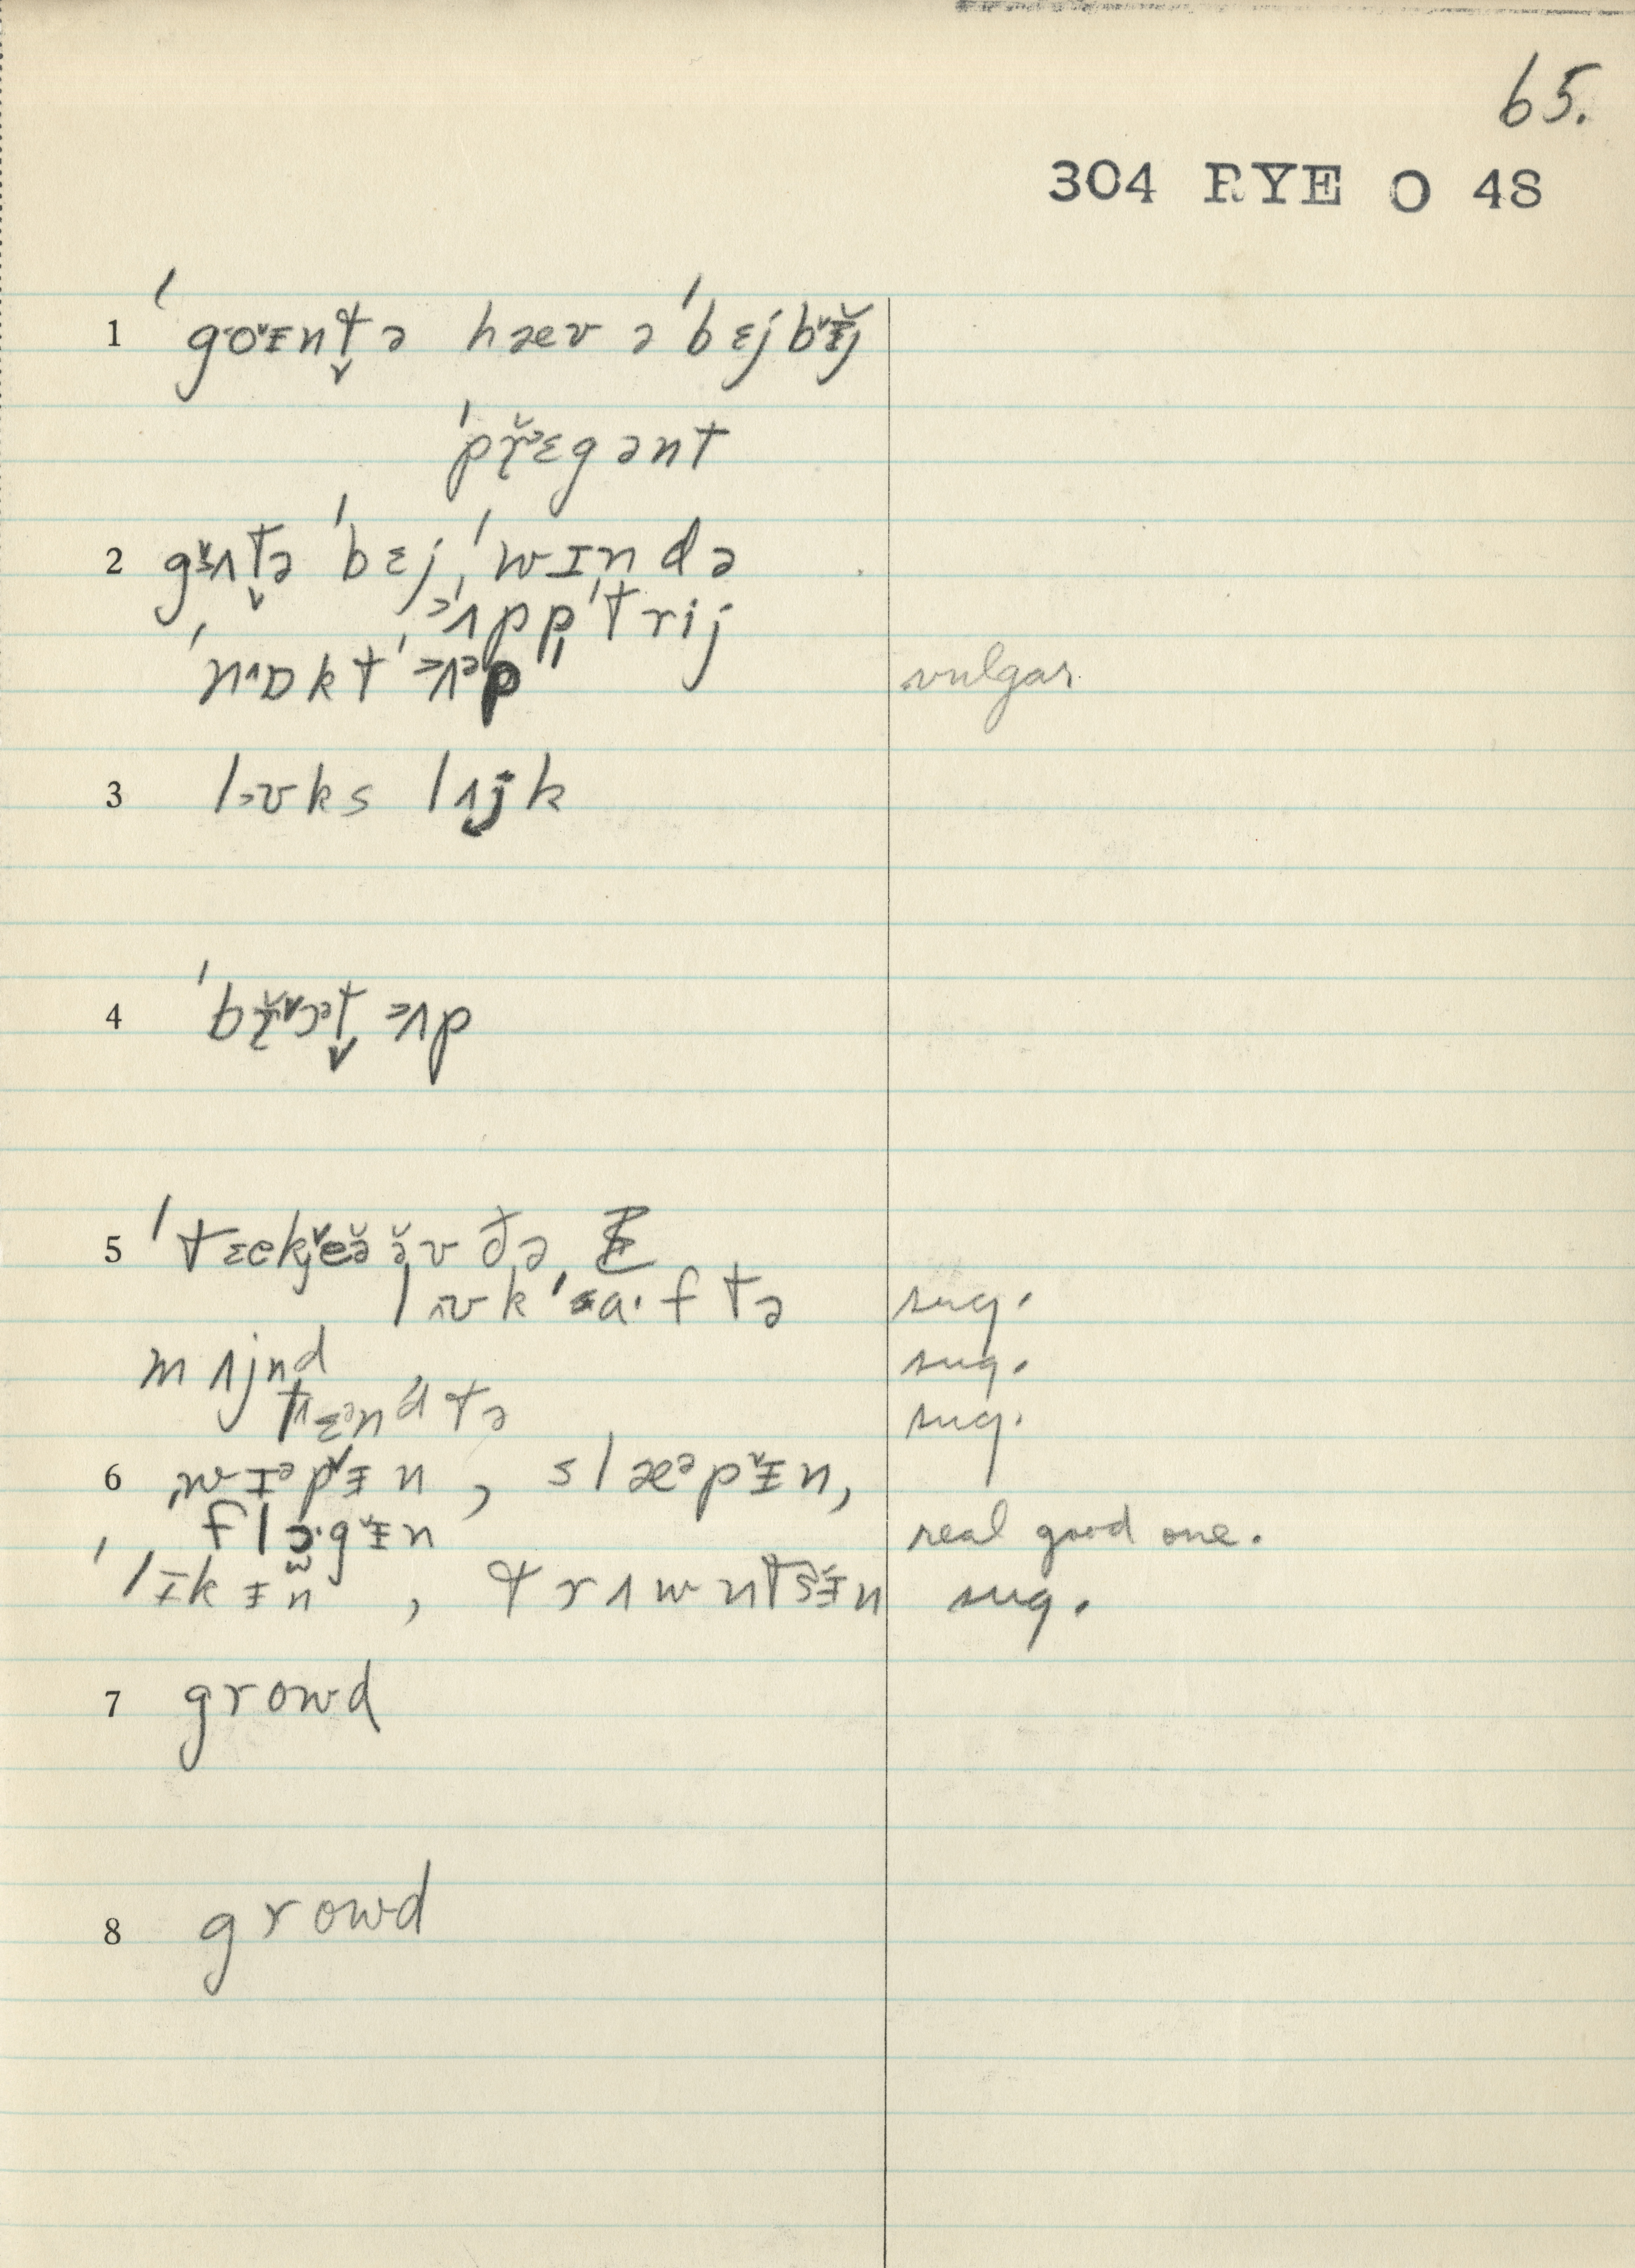 65.
304 RYE O 48
1 ˈgo˞ᵻnt̬ə hæv ə ˈbɛjbᵻj
ˈpr̆ɛgənt
2 gʌt̬ə ˈbɛj, ˈwɪndə
ʌpp̩ ˈtrij
ˈnɒkt ˈʌᵊp vulgar
3 lʊks lʌjk
4 ˈbr̆ɔt̬ ʌp
5 ˈtɛekjɛə̆ ə̆v ðə
lʊk ˈa·ftə sug.
mʌjnd sug.
tɛᵊnd tə sug.
6 ˌwɪᵊpᵻn, slæᵊpᵻn,
flɔ·gᵻn real good one.
ˈlɪkᵻn, trʌwntsᵻn sug.
7 growd
8 growd